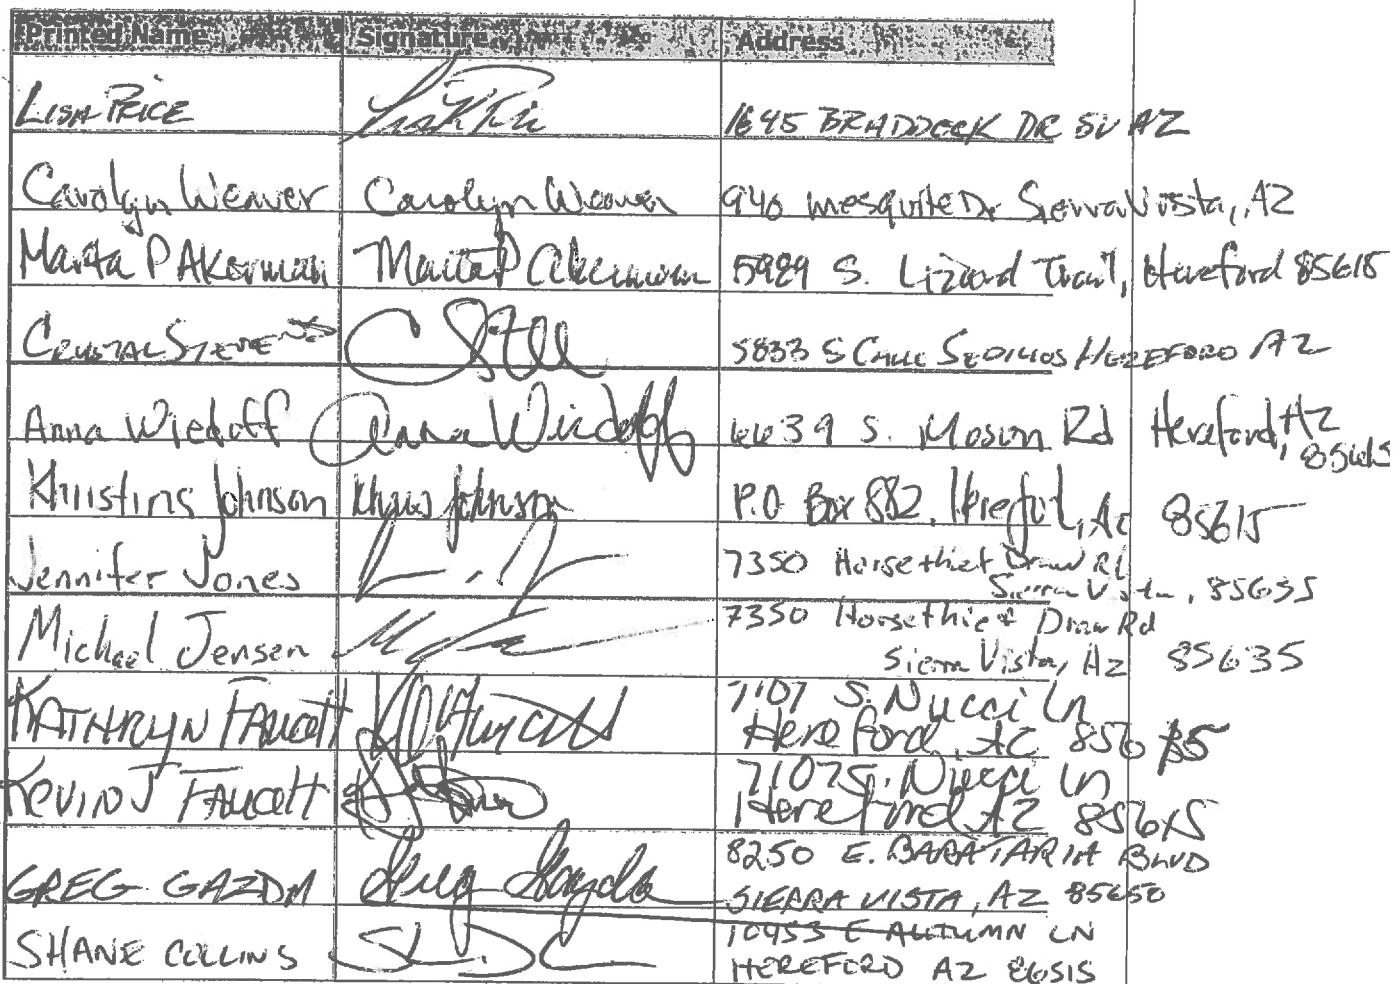 Printed Name Signature Address
LISA PRICE 1645 BRADDOCK DR SV AZ
Carolyn Weaver Carolyn Weaver 940 Mesquite Dr Sierra Vista, AZ
Marta P Akerman Marta P Akerman 5989 S. Lizard Trail, Hereford 85615
CRYSTAL STEVENS 5833 S CALLE SEDILLOS HEREFORD AZ
Anna Wiedoff Anna Wiedoff 6639 S. Moson Rd Hereford, AZ
85615
Johnson Johnson P.O Box 882, Hereford, Az 85615
Jennifer Jones 7350 Horsethief Draw Rd
Sierra Vista, 85635
Michael Jensen 7350 Horsethief Draw Rd
Sierra Vista, Az 85635
KATHRYN FAUCETT 7107 S. Nucci Ln
Hereford, AZ
KEVIN J FAUCETT 7107 S. Nucci Ln
Hereford AZ 85615
GREG GAZDA Greg Gazda 8250 E. BARATARIA BLVD
SIERRA VISTA, AZ 85650
SHANE COLLINS 10453 E AUTUMN LN
HEREFORD AZ 86515